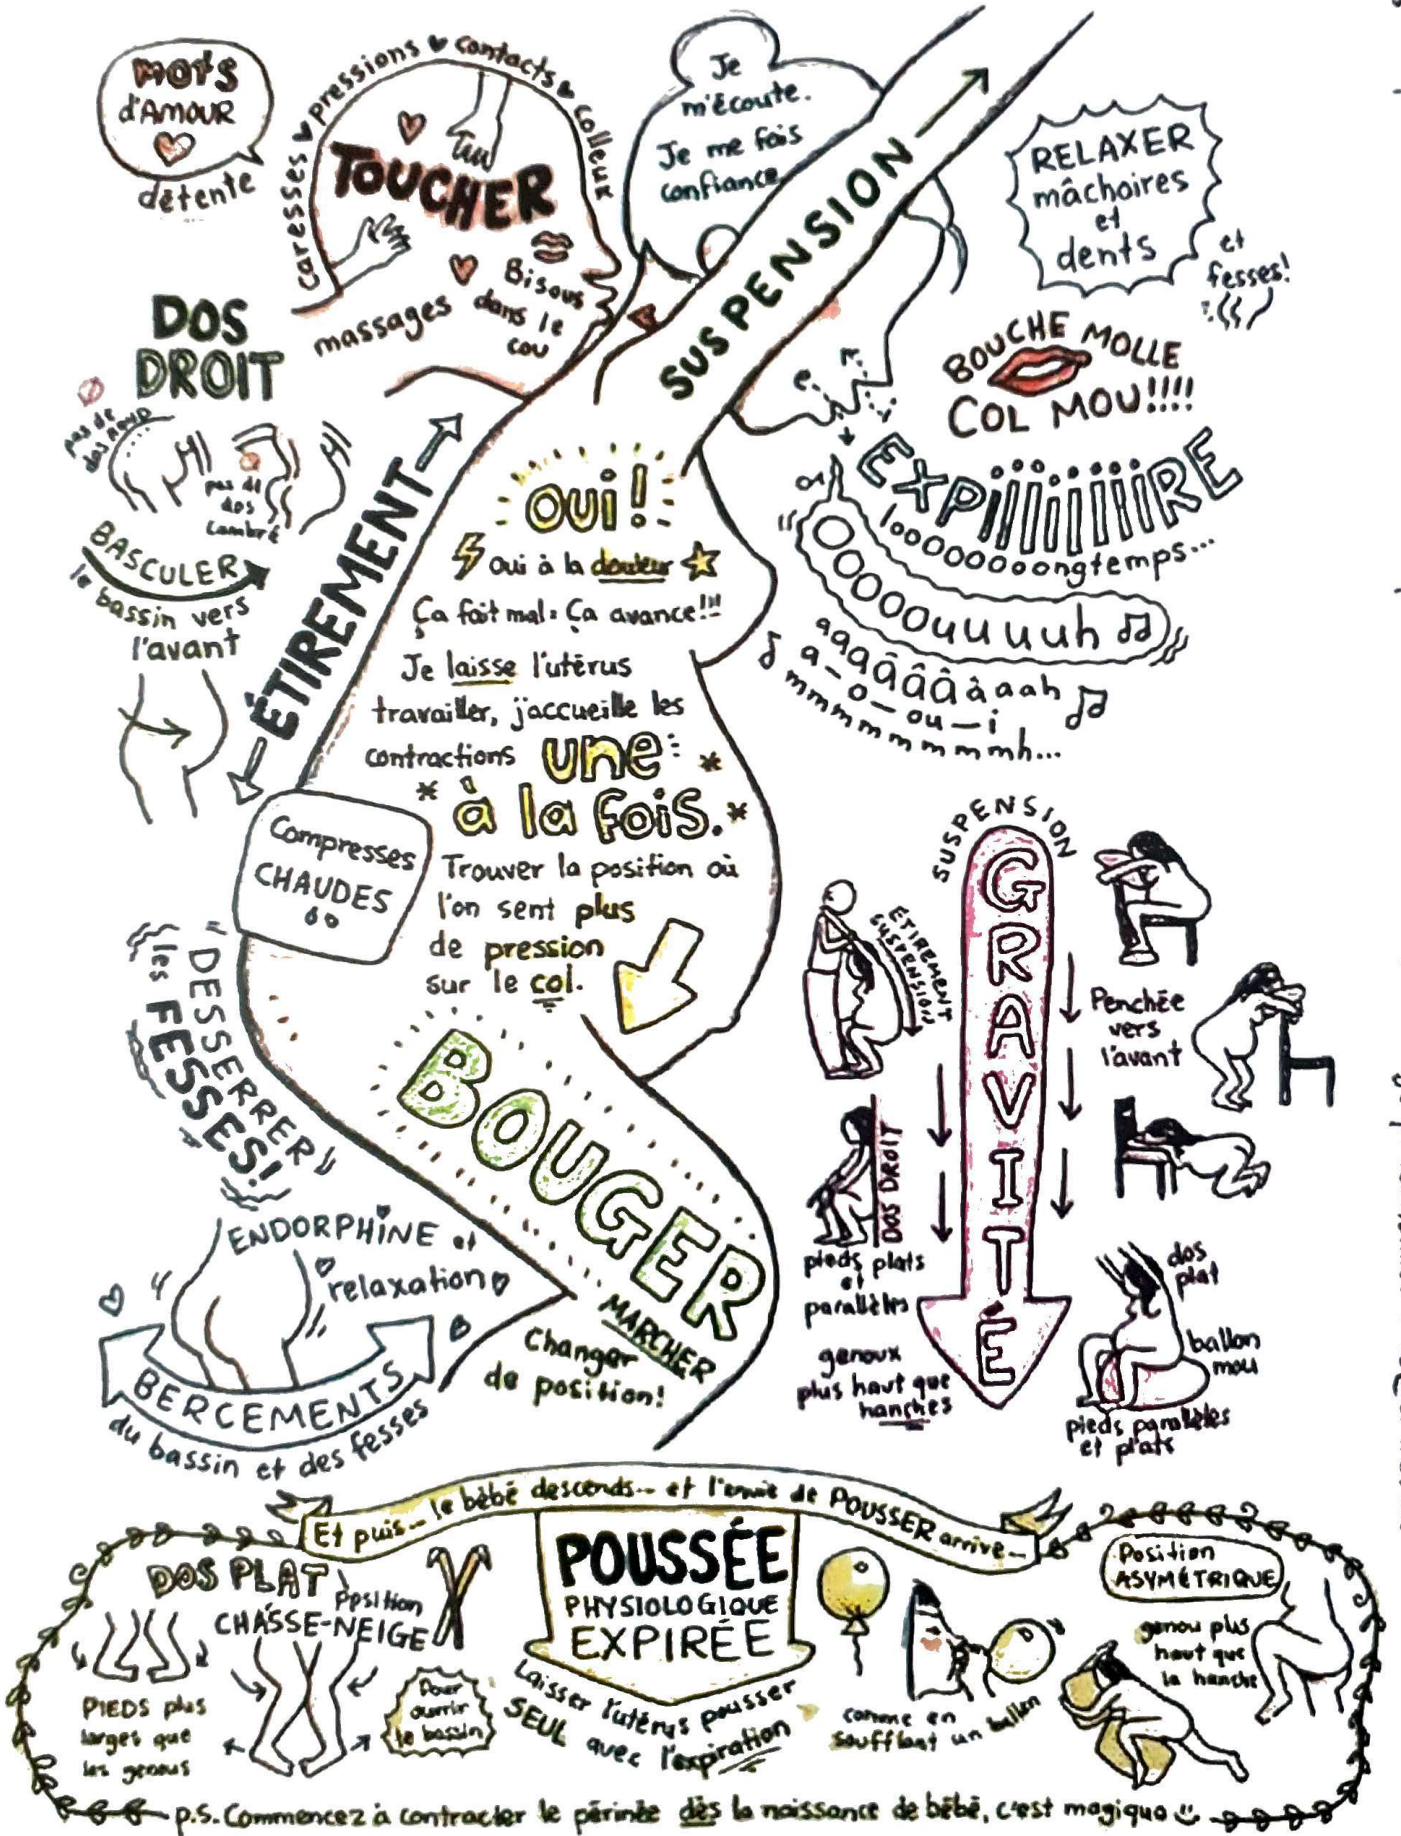 MOTS
d'AMOUR
détente
caresses pressions contacts colleux
TOUCHER
massages
Bisous
dans le
cou
Je
m'écoute.
Je me fais
confiance
SUSPENSION
RELAXER
mâchoires
et
dents
et
fesses!
BOUCHE MOLLE
COL MOU!!!!
DOS
DROIT
pas de
dos rond
pas de
dos
cambré
BASCULER
le bassin vers
l'avant
ÉTIREMENT
OUI!
Oui à la douleur
Ça fait mal: Ça avance!!!
Je laisse l'utérus
travailler, j'accueille les
contractions une
à la fois.
Trouver la position où
l'on sent plus
de pression
sur le col.
EXPiiiiiiiiiRE
looooooooongtemps...
OOOOOuuuuuh
aaaâââàaah
a-o-ou-i
mmmmmmmmmh...
Compresses
CHAUDES
"DESSERRER"
les FESSES!
BOUGER
MARCHER
Changer
de position!
ENDORPHiNE et
relaxation
BERCEMENTS
du bassin et des fesses
SUSPENSION
GRAVITÉ
ÉTIREMENT
SUSPENSION
Penchée
vers
l'avant
DOS DROIT
pieds plats
et
parallèles
genoux
plus haut que
hanches
dos
plat
ballon
mou
pieds parallèles
et plats
Et puis... le bébé descends... et l'envie de POUSSER arrive...
DOS PLAT
position
CHASSE-NEIGE
PIEDS plus
larges que
les genoux
Pour
ouvrir
le bassin
POUSSÉE
PHYSIOLOGIQUE
EXPIRÉE
Laisser l'utérus pousser
SEUL avec l'expiration
comme en
soufflant un ballon
Position
ASYMÉTRIQUE
genou plus
haut que
la hanche
p.s. Commencez à contracter le périnée dès la naissance de bébé, c'est magique